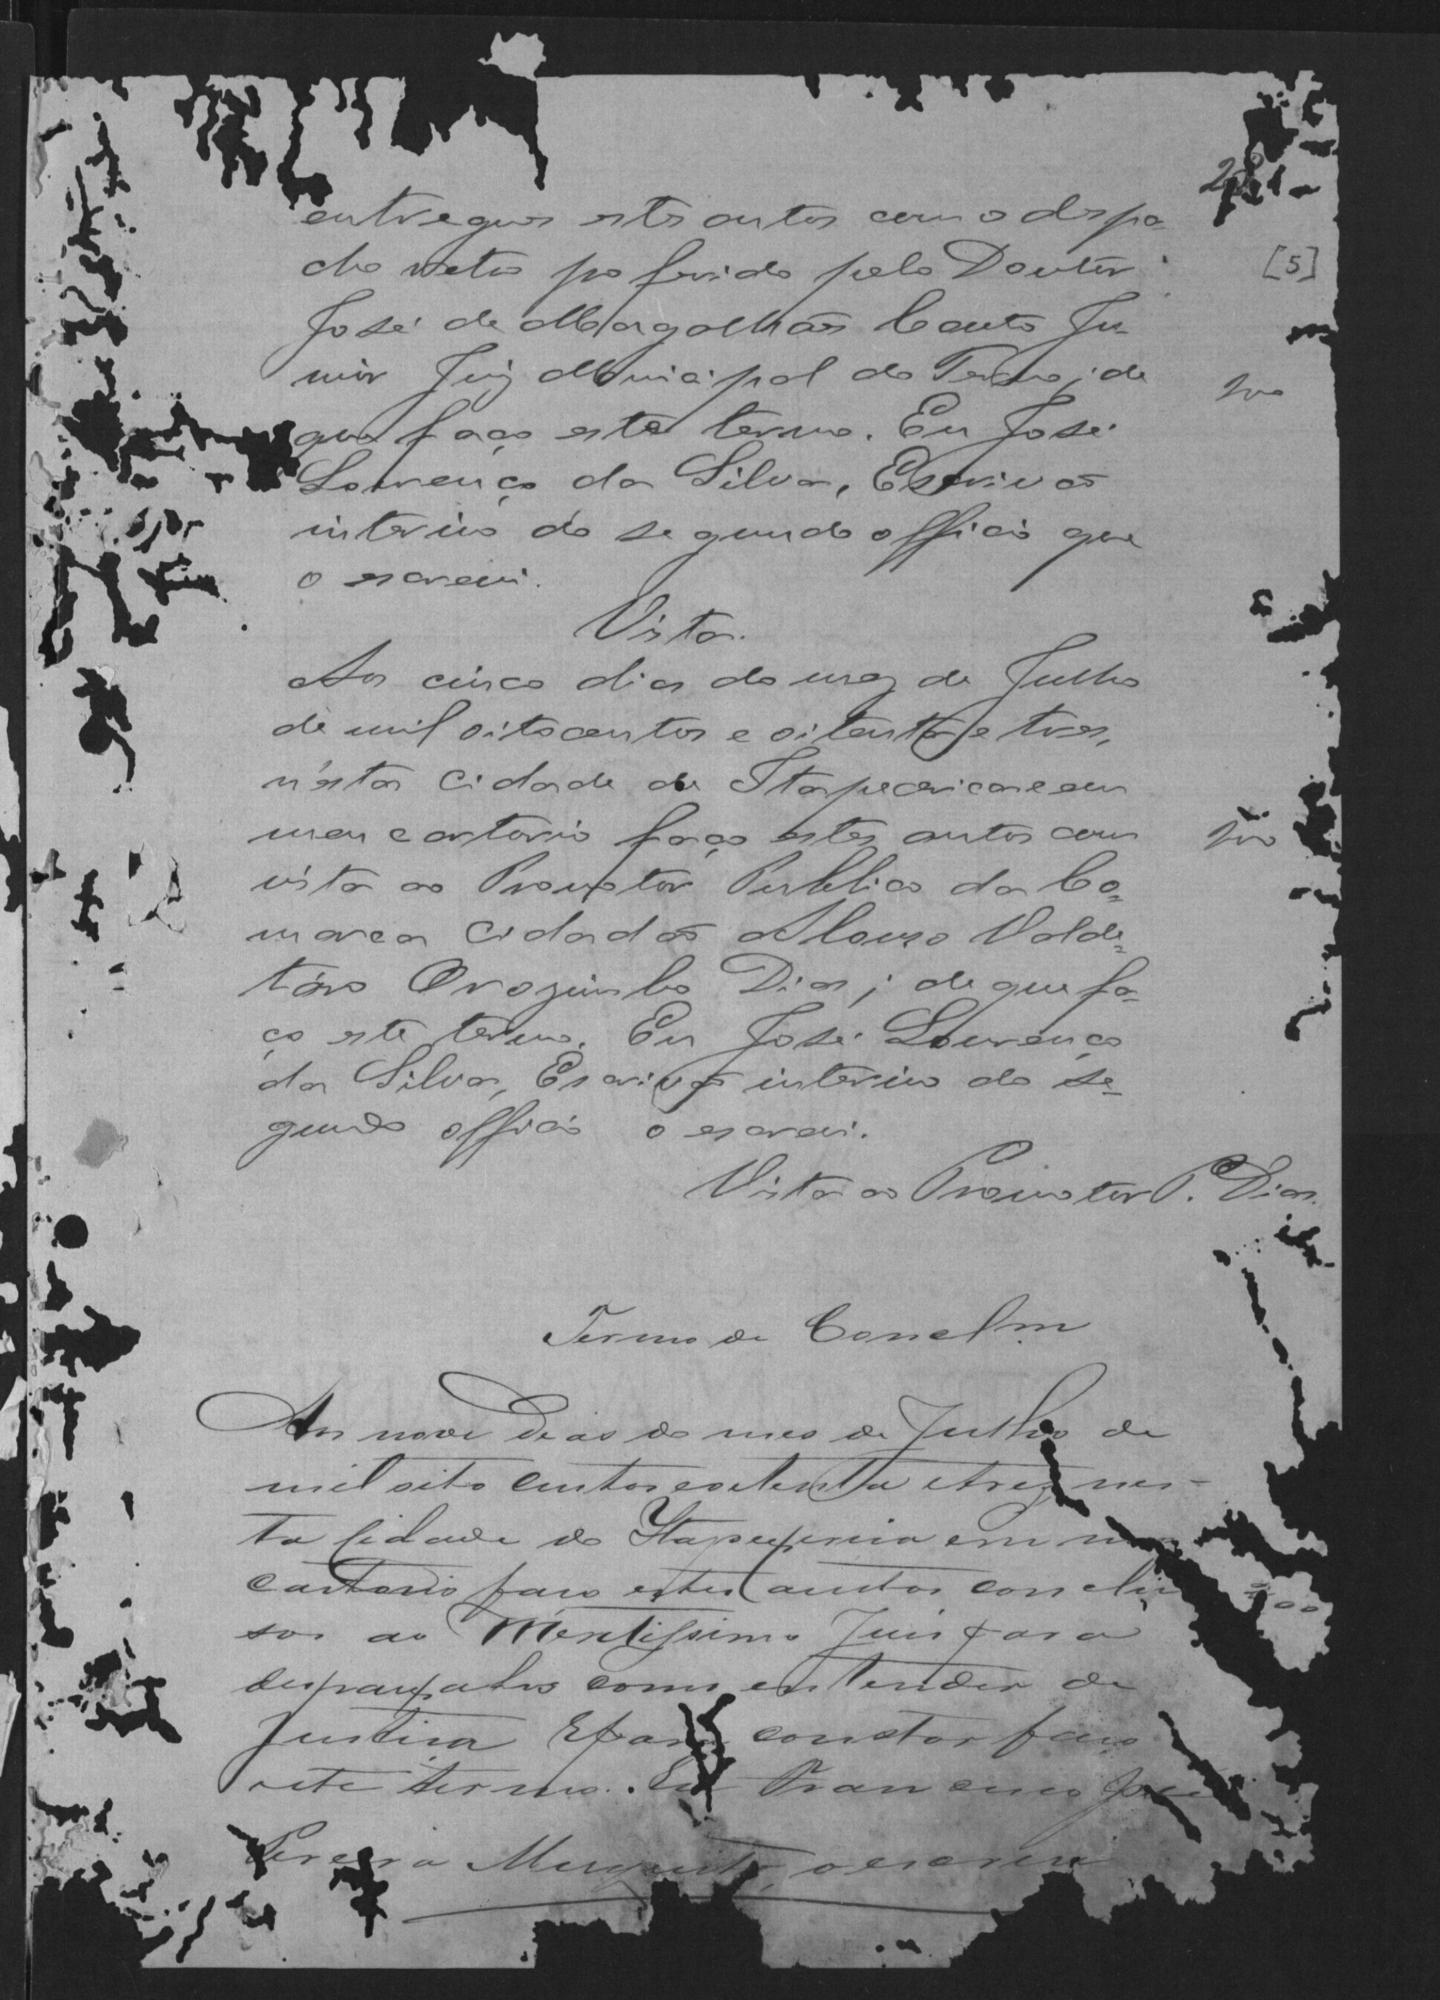 28
entregues estes autos com o despa-
cho retro proferido pelo Doutor
[5]
José de Magalhães Couto Ju-
nior Juiz Municipal do Termo; de
que faço este termo. Eu José
Lourenço da Silva, Escrivão
interino do segundo officio que
o escrevi.
Vista.
Aos cinco dias do mez de Julho
de mil oitocentos e oitenta e tres,
n'esta cidade de Itapecerica e em
meu cartorio faço estes autos com
vista ao Promotor Publico da Co-
marca cidadão Alonso Valde-
táro Orozimbo Dias; de que fa-
ço este termo. Eu José Lourenço
da Silva, Escrivão interino do se-
gundo officio o escrevi.
Vista ao Promotor P. Dias.
Termo de Conclm
Aos nove dias do mes de Julho de
mil oito centos e oitenta e trez nes-
ta Cidade de Itapecirica em
cartorio faço estes autos conclu
sos ao Meritissimo Juis para
despaxalos como entender de
Justiça E para constar faço
este termo. Eu Francisco José
Pereira o escrevi